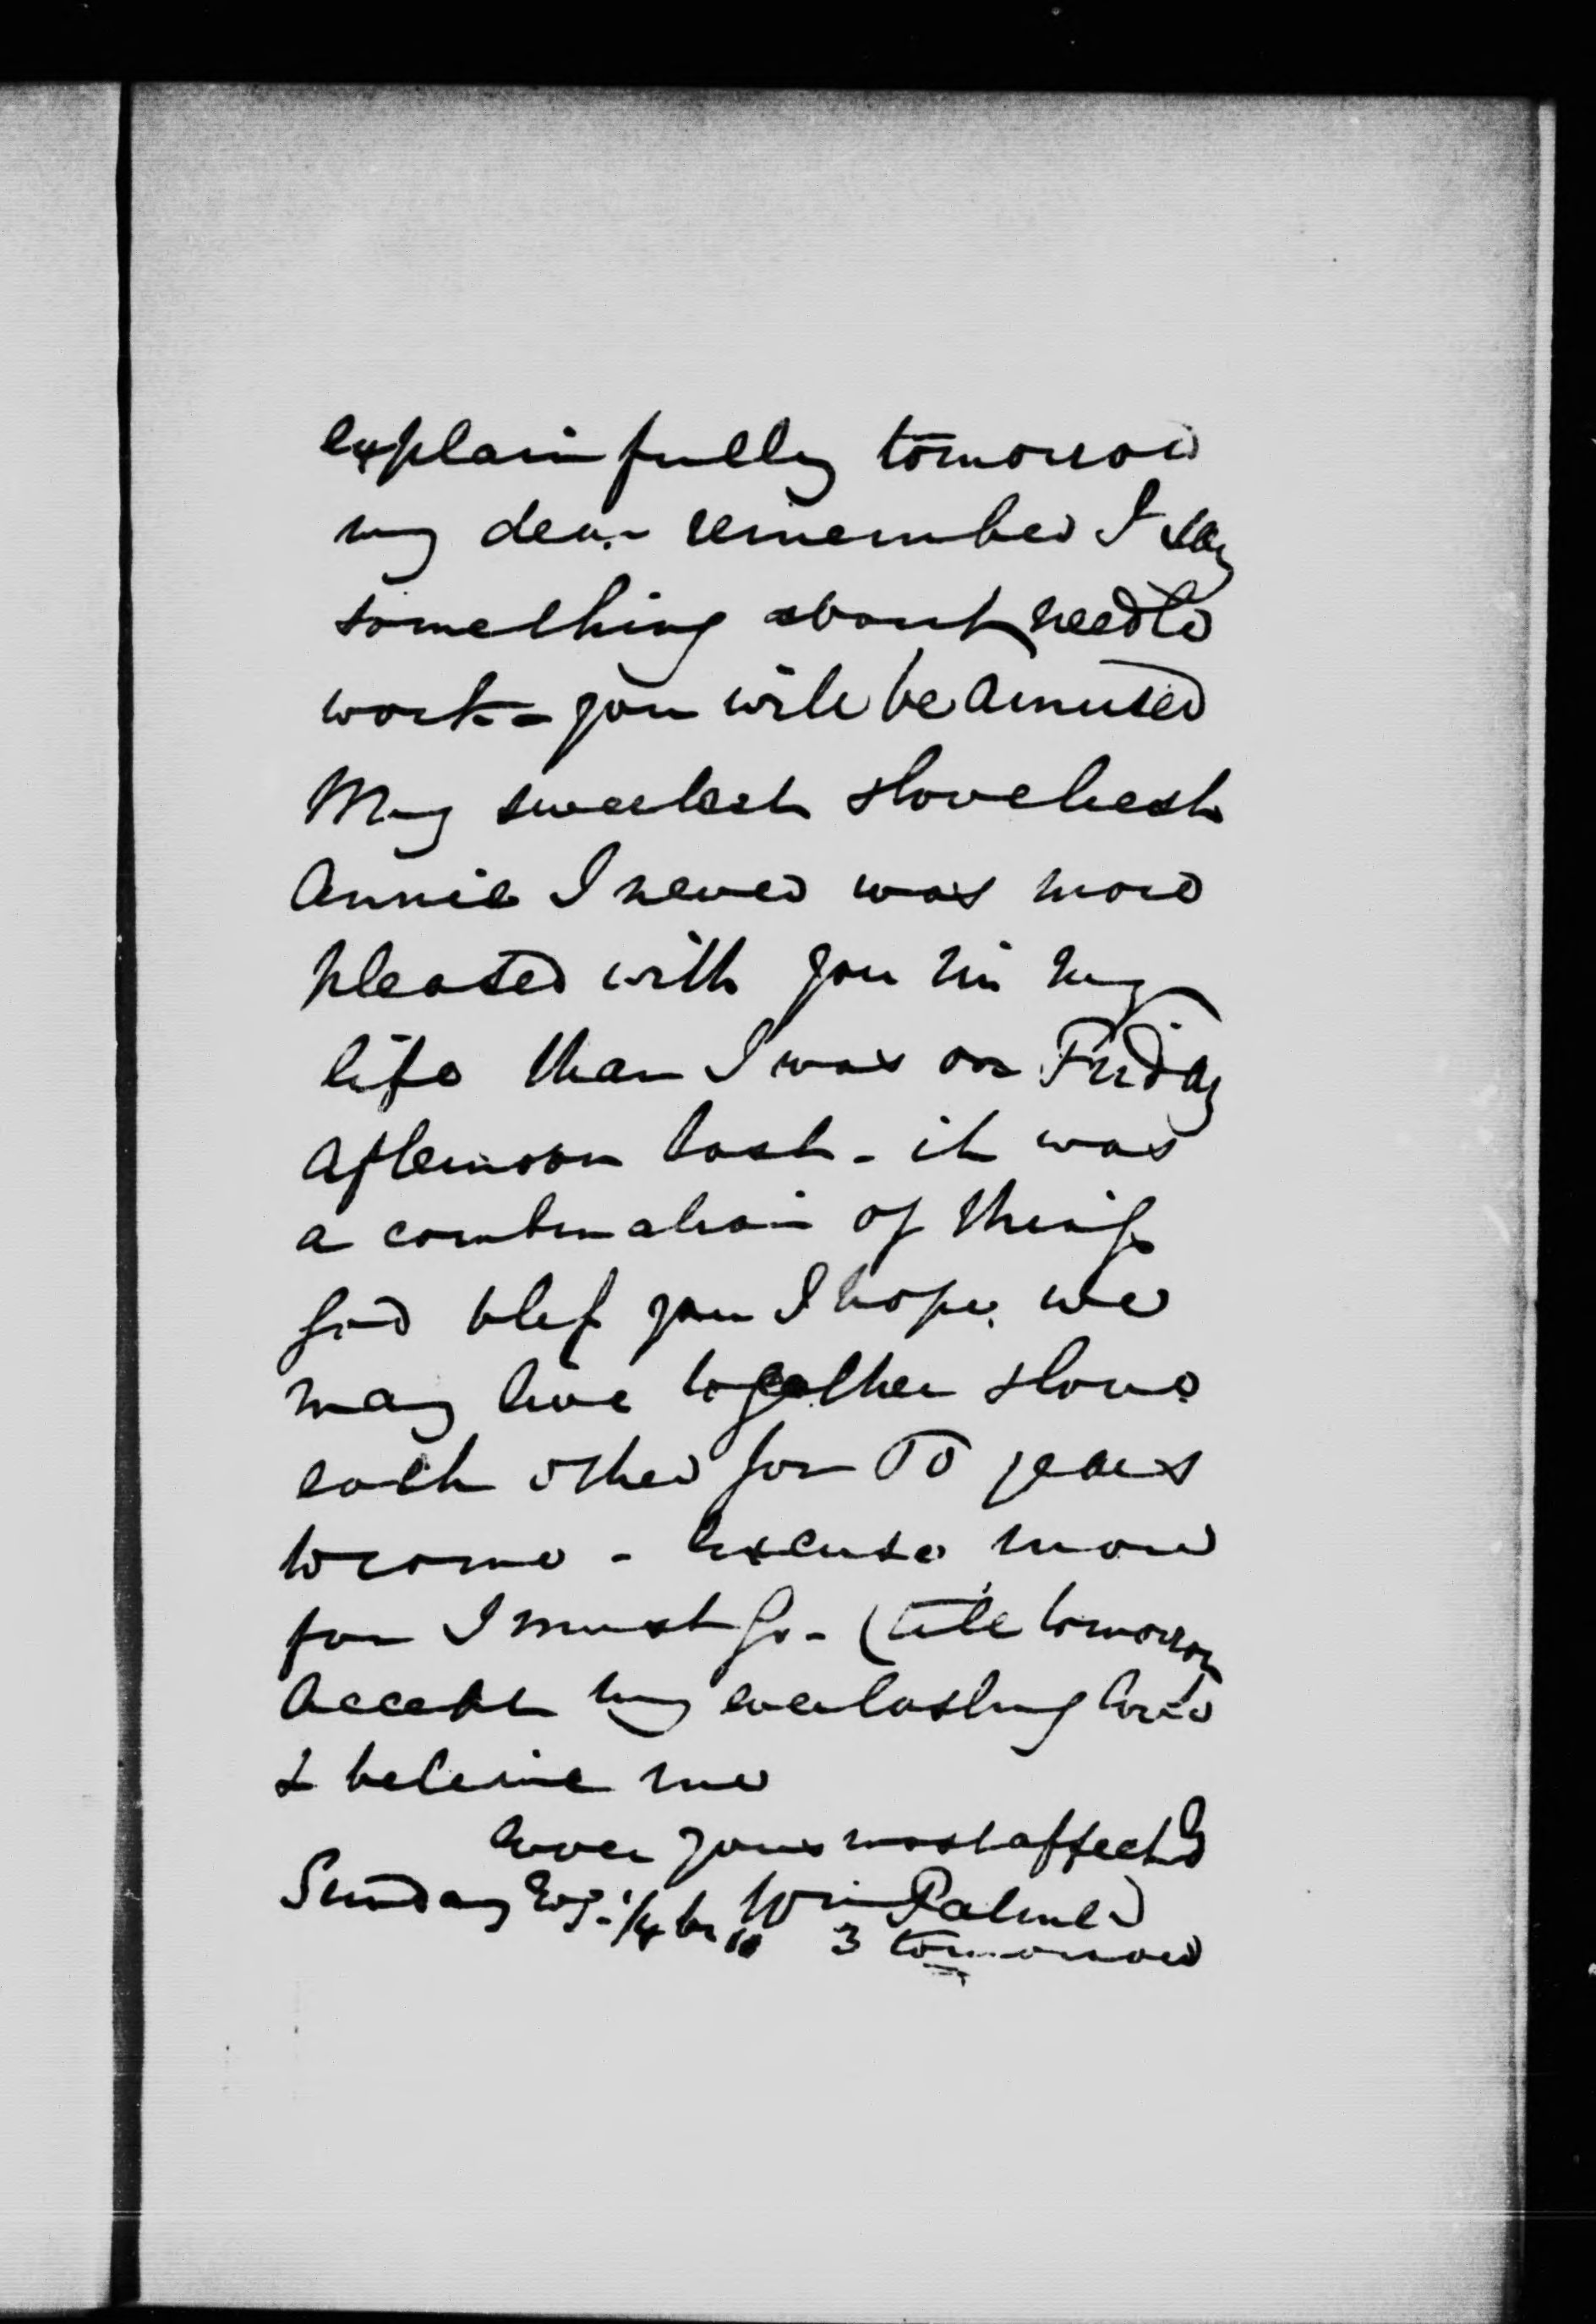 explain fully tomorrow
my dear remember I say
something about needle
work - you will be amused
My sweetest & loveliest
Annie I never was more
pleased with you in my
life than I was on Friday
afternoon last - it was
a combination of things
God bless you I hope we
may live together & love
each other for 50 years
to come - Excuse more
for I must go - (till tomorrow
Accept my everlasting love
& beleive me
Ever yours most affectly
Wm Palmer
Sunday Evg - 1/4 to 10 3 tomorrow